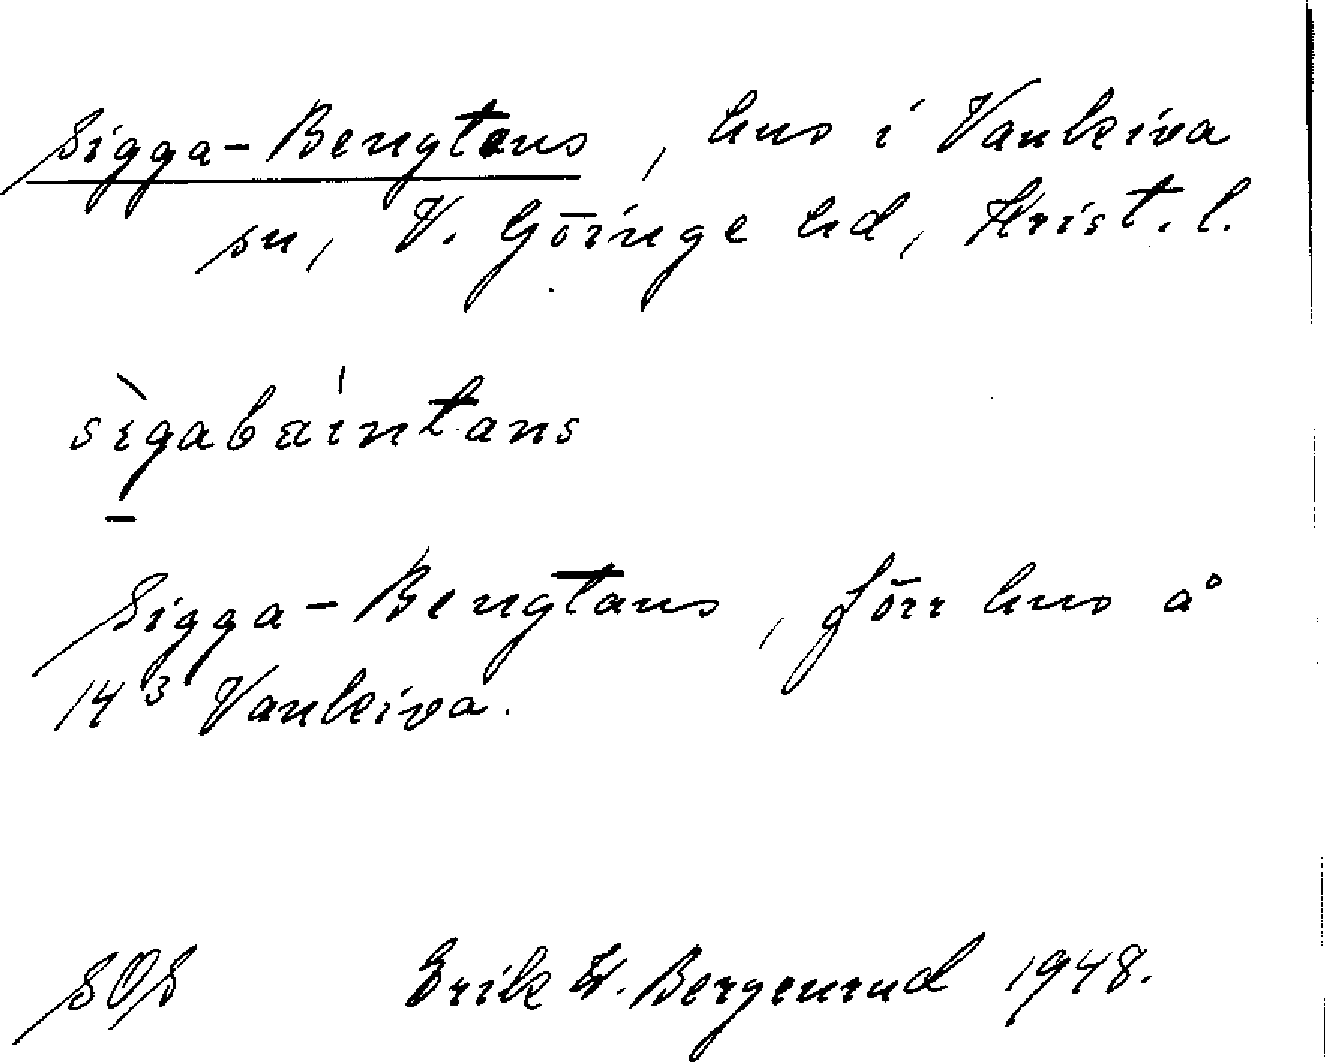 Sigga-Bengtens, hus i Vankiva
sn, V. Göinge hd, Krist. l.
sìgabæintans
Sigga-Bengtans, förr hus å
14³ Vankiva.
SOS Erik W. Bergenrud 1948.